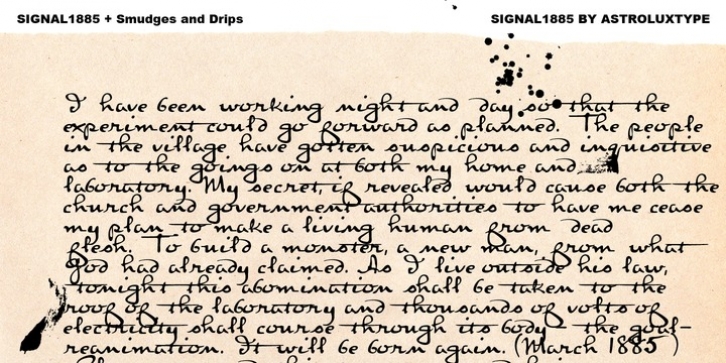 SIGNAL1885 + Smudges and Drips
SIGNAL1885 BY ASTROLUXTYPE
I have been working night and day so that the
experiment could go forward as planned. The people
in the village have gotten suspicious and inquisitive
as to the goings on at both my home and
laboratory. My secret, if revealed would cause both the
church and government authorities to have me cease
my plan to make a living human from dead
flesh. To build a monster, a new man, from what
God had already claimed. As I live outside his law,
tonight this abomination shall be taken to the
roof of the laboratory and thousands of volts of
electricity shall course through its body - the goal-
reanimation. It will be born again. (March 1885)